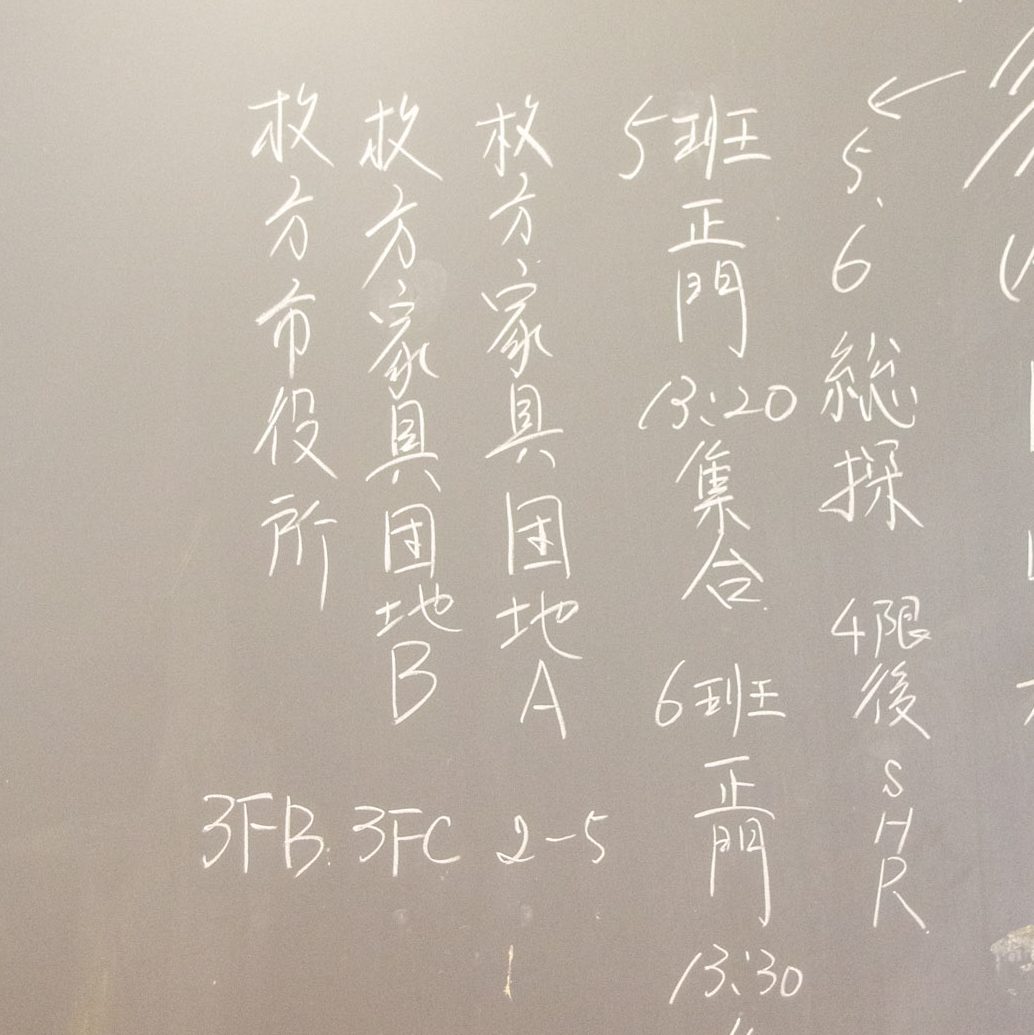 5、6 総探 4限後SHR
5班 正門 13:20 集合 6班 正門 13:30
枚方家具団地A 2-5
枚方家具団地B 3FC
枚方市役所 3FB